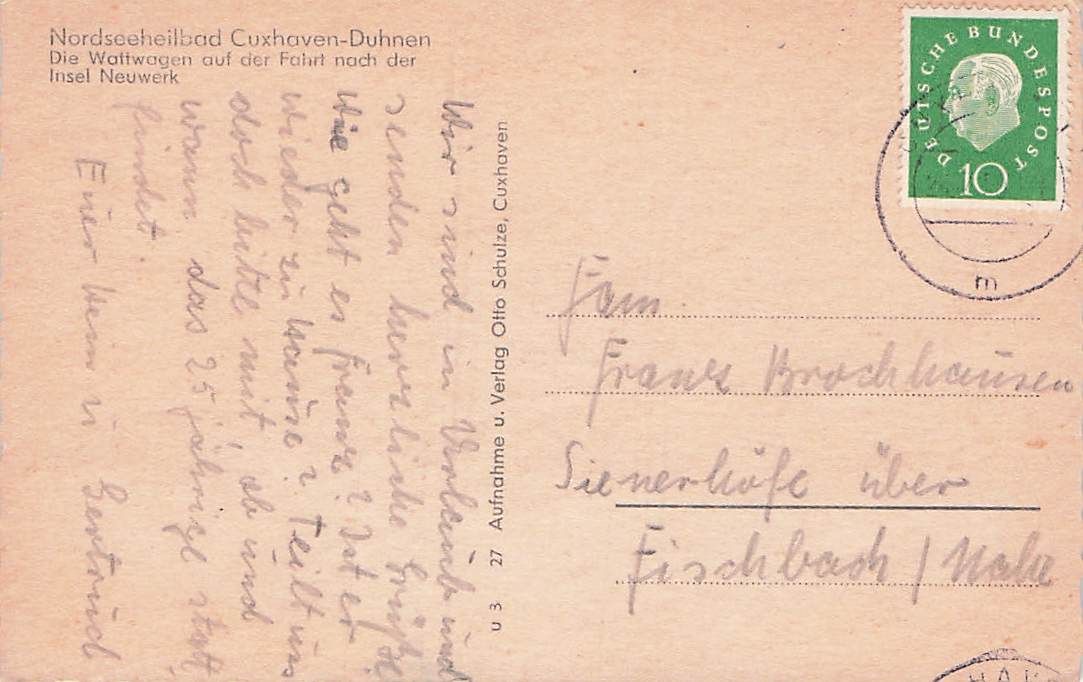 Nordseeheilbad Cuxhaven-Duhnen
Die Wattwagen auf der Fahrt nach der
Insel Neuwerk
Wir sind in Urlaub und
senden herzliche Grüße
Wie geht es Franz? Ist er
wieder zu hause? Teilt uns
doch bitte mit, ob und
wann das 25 jährige statt
findet.
Euer Hein u Gertrud
u 3 27 Aufnahme u. Verlag Otto Schulze, Cuxhaven
DEUTSCHE BUNDESPOST
10
m
Fam.
Franz Brochhausen
Sienerhöfe über
Fischbach / Nahe
HAV